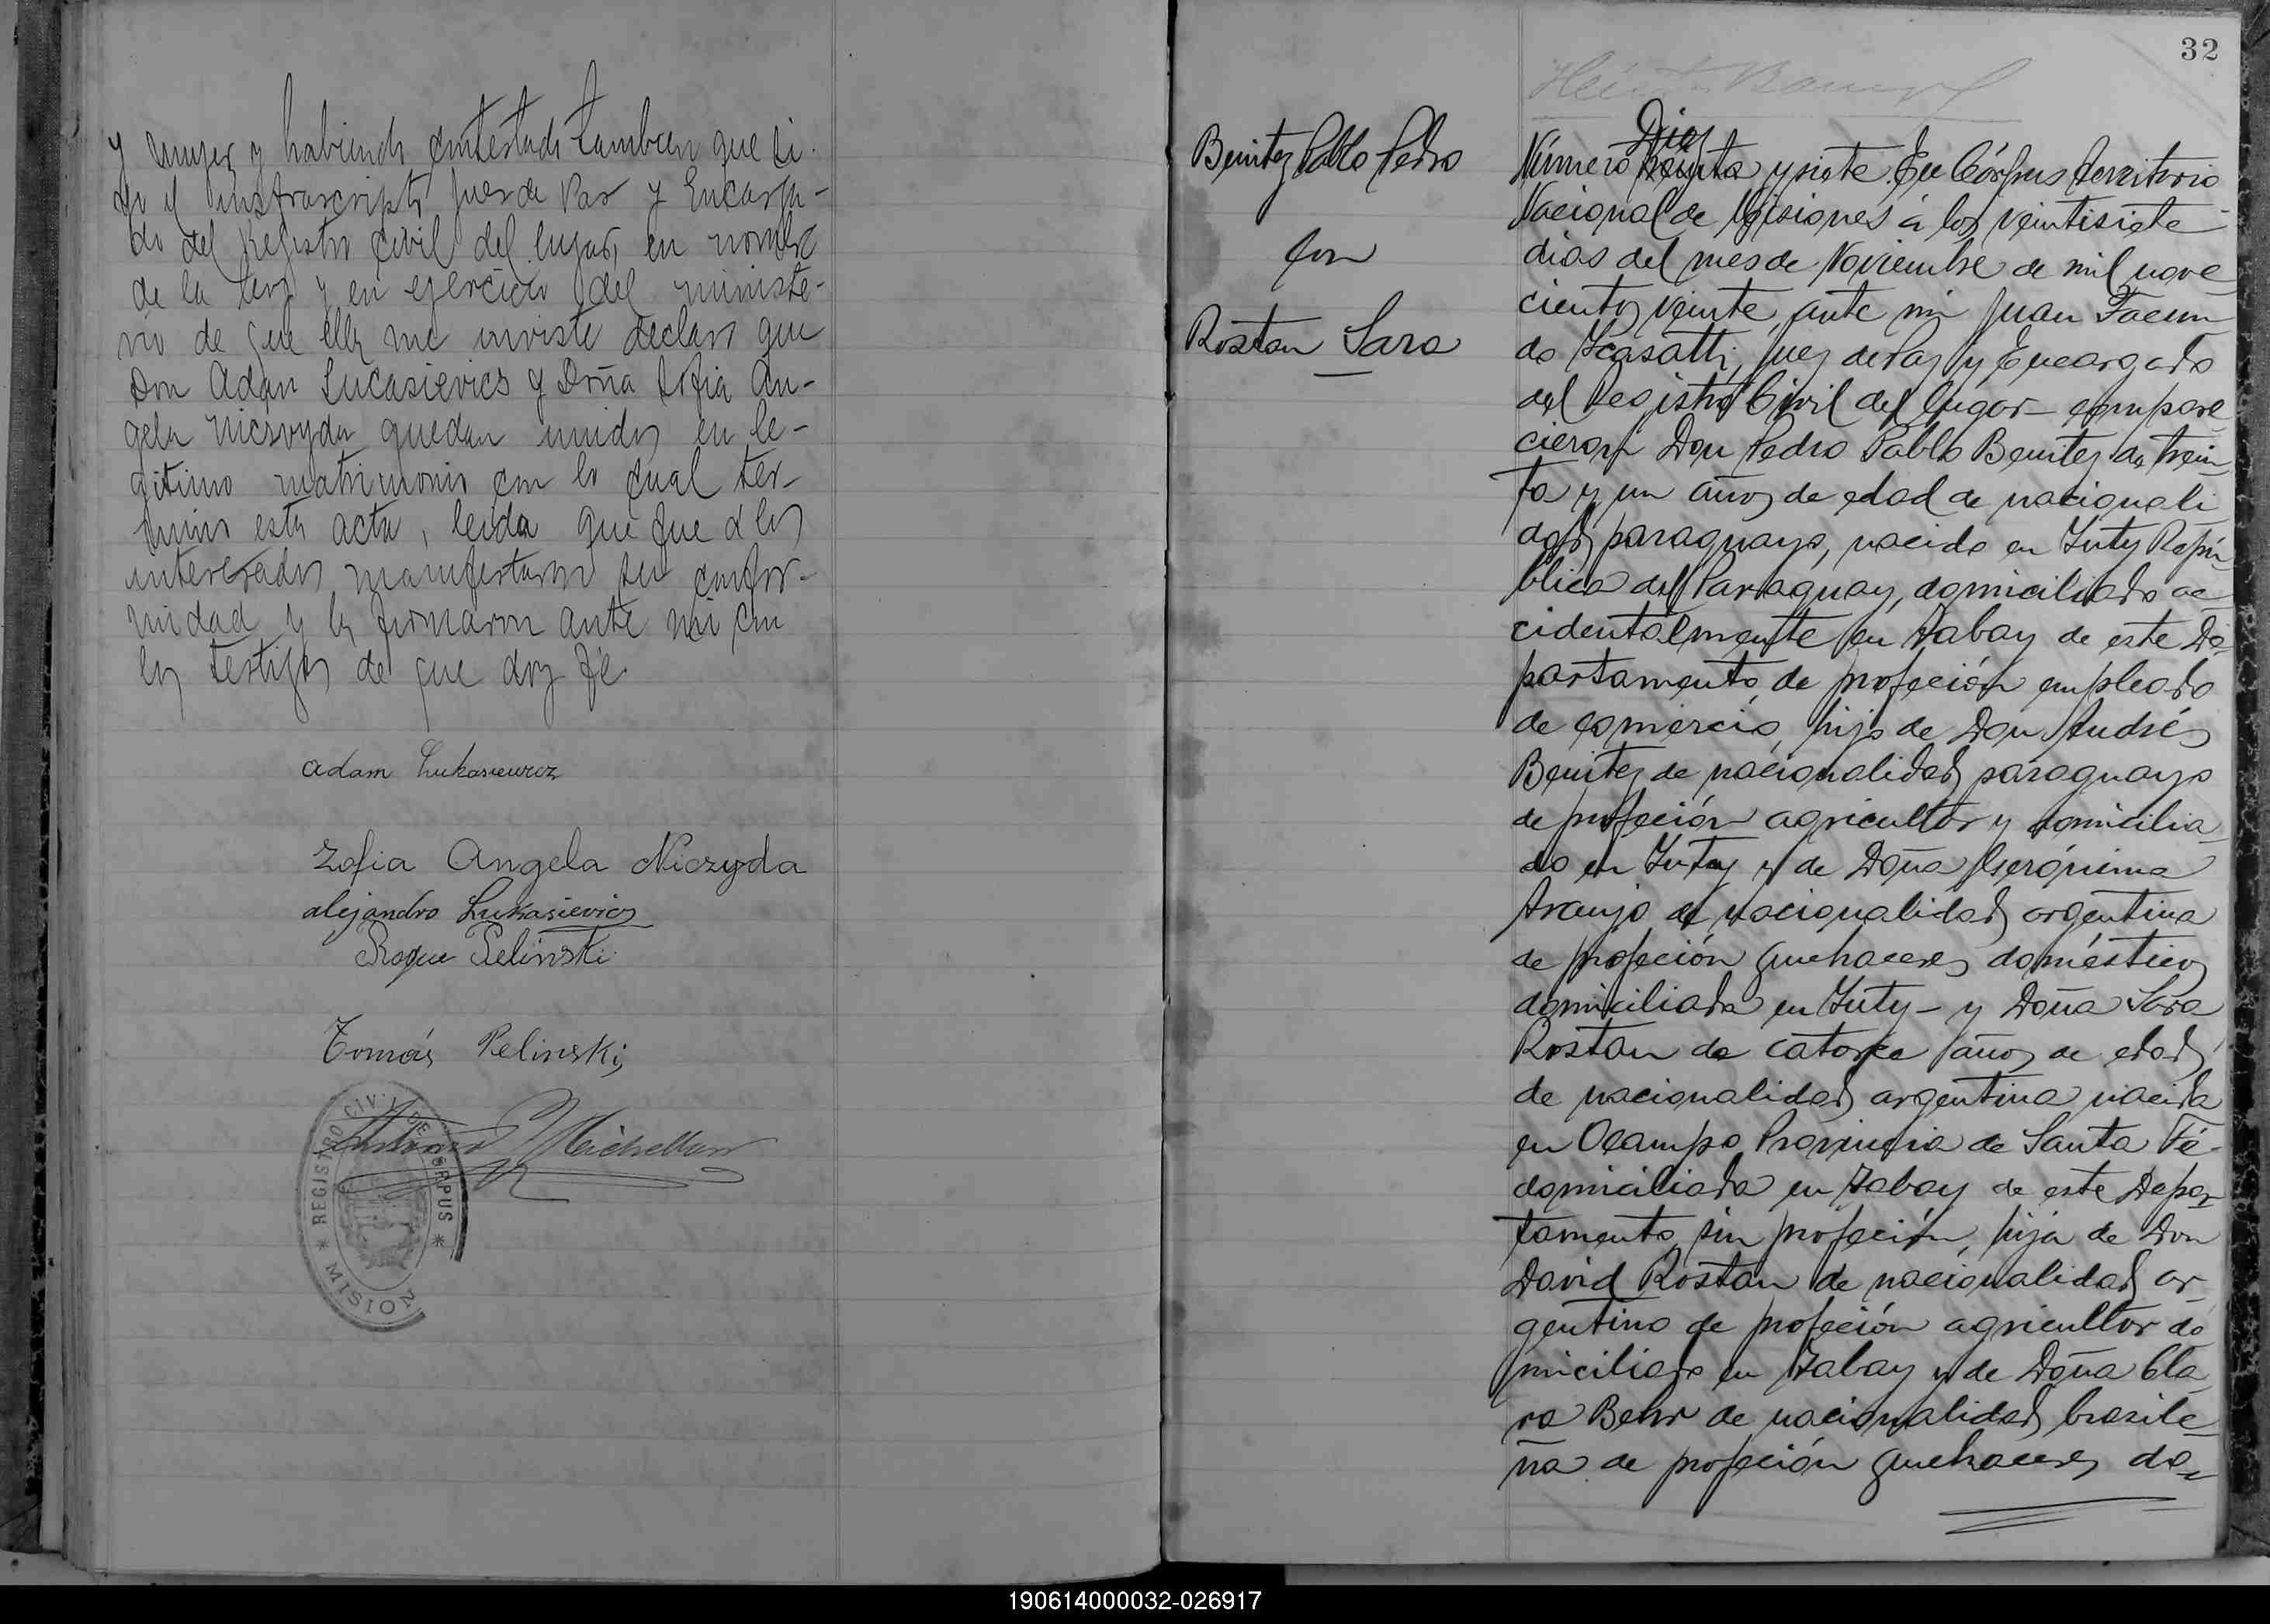 y mujer, y habiendo contestado tambien que si.
yo el infrascripto Juez de Paz y Encarga-
do del Registro Civil del lugar, en nombre
de la Ley y en ejercicio del ministe-
rio de que ella me inviste declaro que
Don Adan Lucasievics y Doña Sofia An-
gela Niczoyda quedan unidos en le-
gitimo matrimonio con lo cual ter-
mino esta acta, leida que fue a los
interesados manifestaron su confor-
midad y la firmaron ante mi con
los testigos de que doy fé.
Adam Lukasiewicz
Zofia Angela Niczyda
alejandro Lukasievics
Roque Pelinski
Tomás Pelinski
REGISTRO CIV. Y DE CORPUS * MISION *
32
Benitez Pablo Pedro
con
Rostan Sara
Diez
Número treinta y siete. En Córpus Territorio
Nacional de Misiones á los veintisiete
dias del mes de Noviembre de mil nove
cientos veinte, ante mi Juan Facun
do Icasatti, Juez de Paz y Encargado
del Registro Civil del lugar compare
cieron Don Pedro Pablo Benitez de trein
ta y un años de edad de nacionali
dad paraguaya, nacido en Yuty Repú
blica del Paraguay, domiciliado ac
cidentalmente en Yabay de este De
partamento, de profeción empleado
de comercio, hijo de Don Andrés
Benitez de nacionalidad paraguayo
de profeción agricultor y domicilia
do en Yuty y de Doña Gerónima
Araujo de nacionalidad argentina
de profeción quehaceres domésticos
domiciliada en Yuty - y Doña Sara
Rostan de catorce años de edad,
de nacionalidad argentina nacida
en Ocampo Provincia de Santa Fé
domiciliada en Yabay de este Depar
tamento, sin profeción, hija de Don
David Rostan de nacionalidad ar
gentino de profeción agricultor do
miciliado en Yabay y de Doña Cla
ra Behr de nacionalidad brasile
ña de profeción quehaceres do=
190614000032-026917